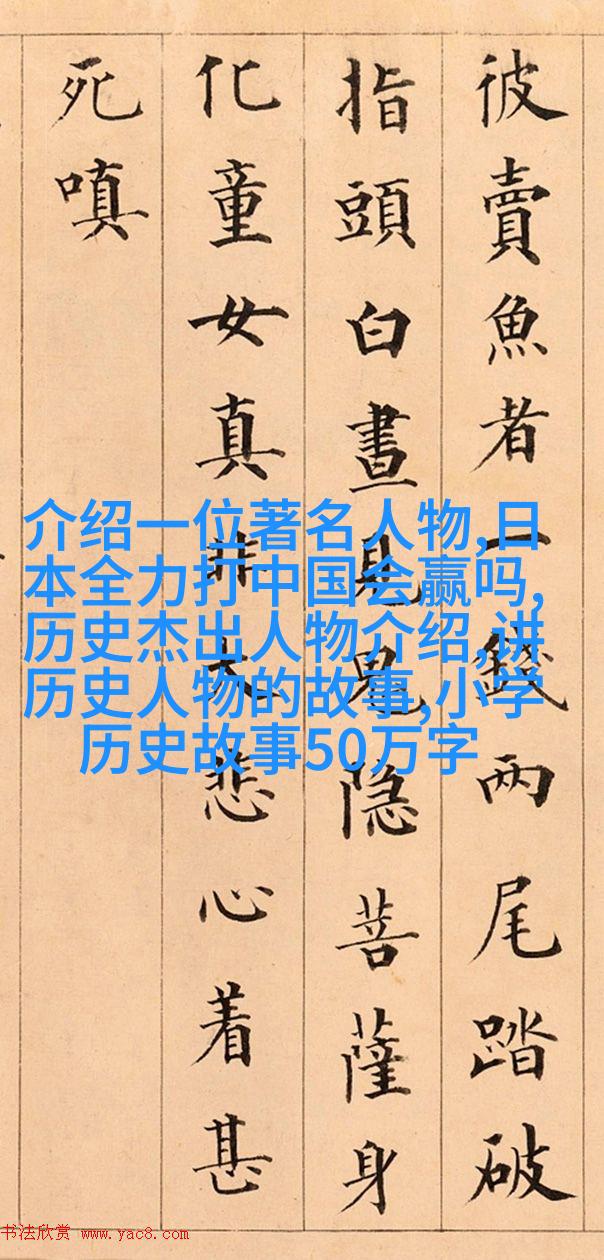 彼賣魚者一錢兩尾踏破
指頭白晝見鬼隐菩薩身
化童女真大悲心着甚
死嗔
介绍一位著名人物,日
本全力打中国会赢吗,
历史杰出人物介绍,讲
历史人物的故事,小学
历史故事50万字
书法欣赏 www.yac8.com